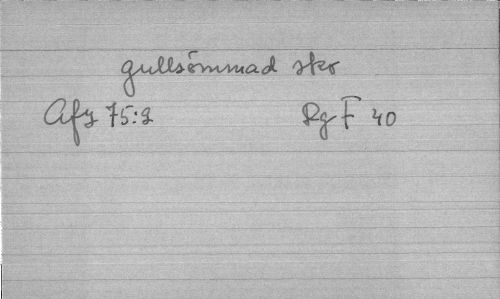 gullsömmad sko
Afz 75:2 RgF 40